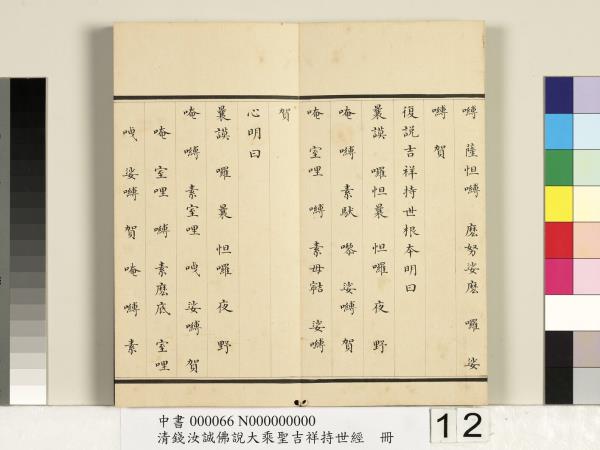 嚩 薩怛嚩 麽努娑麽 囉 娑
嚩 賀
復說吉祥持世根本明曰
曩謨 囉怛曩 怛囉 夜 野
唵 嚩 素馱 㘑 娑嚩 賀
唵 室哩 嚩 素毋䭾 娑嚩
賀
心明曰
曩謨 囉 曩 怛囉 夜 野
唵 嚩 素室哩 曳 娑嚩 賀
唵 室哩 嚩 素麽底 室哩
曳 娑嚩 賀 唵 嚩 素
中書 000066 N000000000
清錢汝誠佛說大乘聖吉祥持世經 冊
12